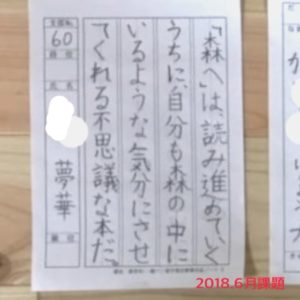 「森へ」は、読み進めていく
うちに、自分も森の中に
いるような気分にさせ
てくれる不思議な本だ。
60
氏名
夢華
2018.6月課題